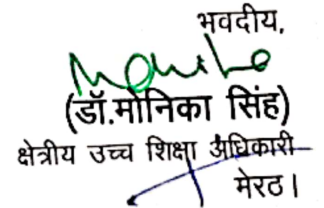 भवदीय,
(डॉ.मोनिका सिंह)
क्षेत्रीय उच्च शिक्षा अधिकारी
मेरठ।